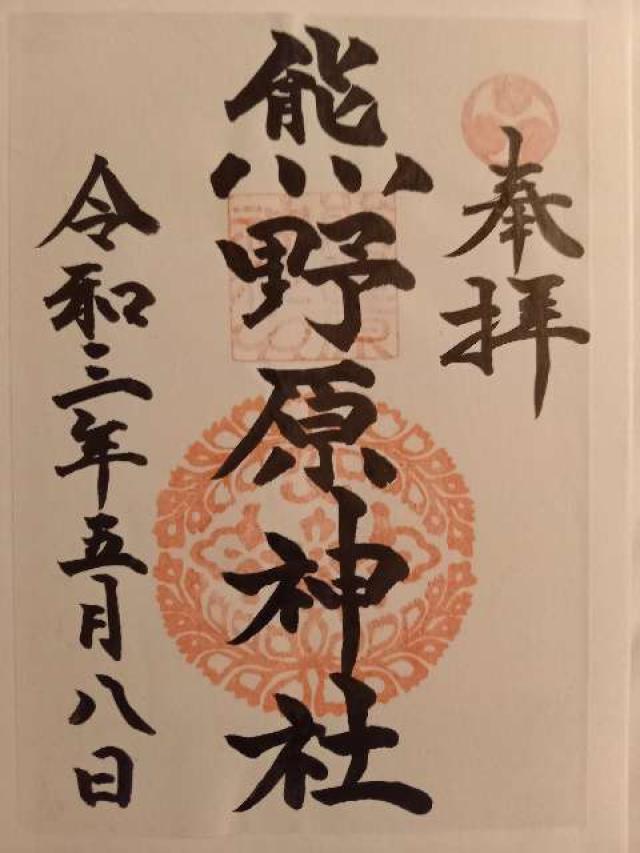 奉拝
熊野原神社
令和三年五月八日